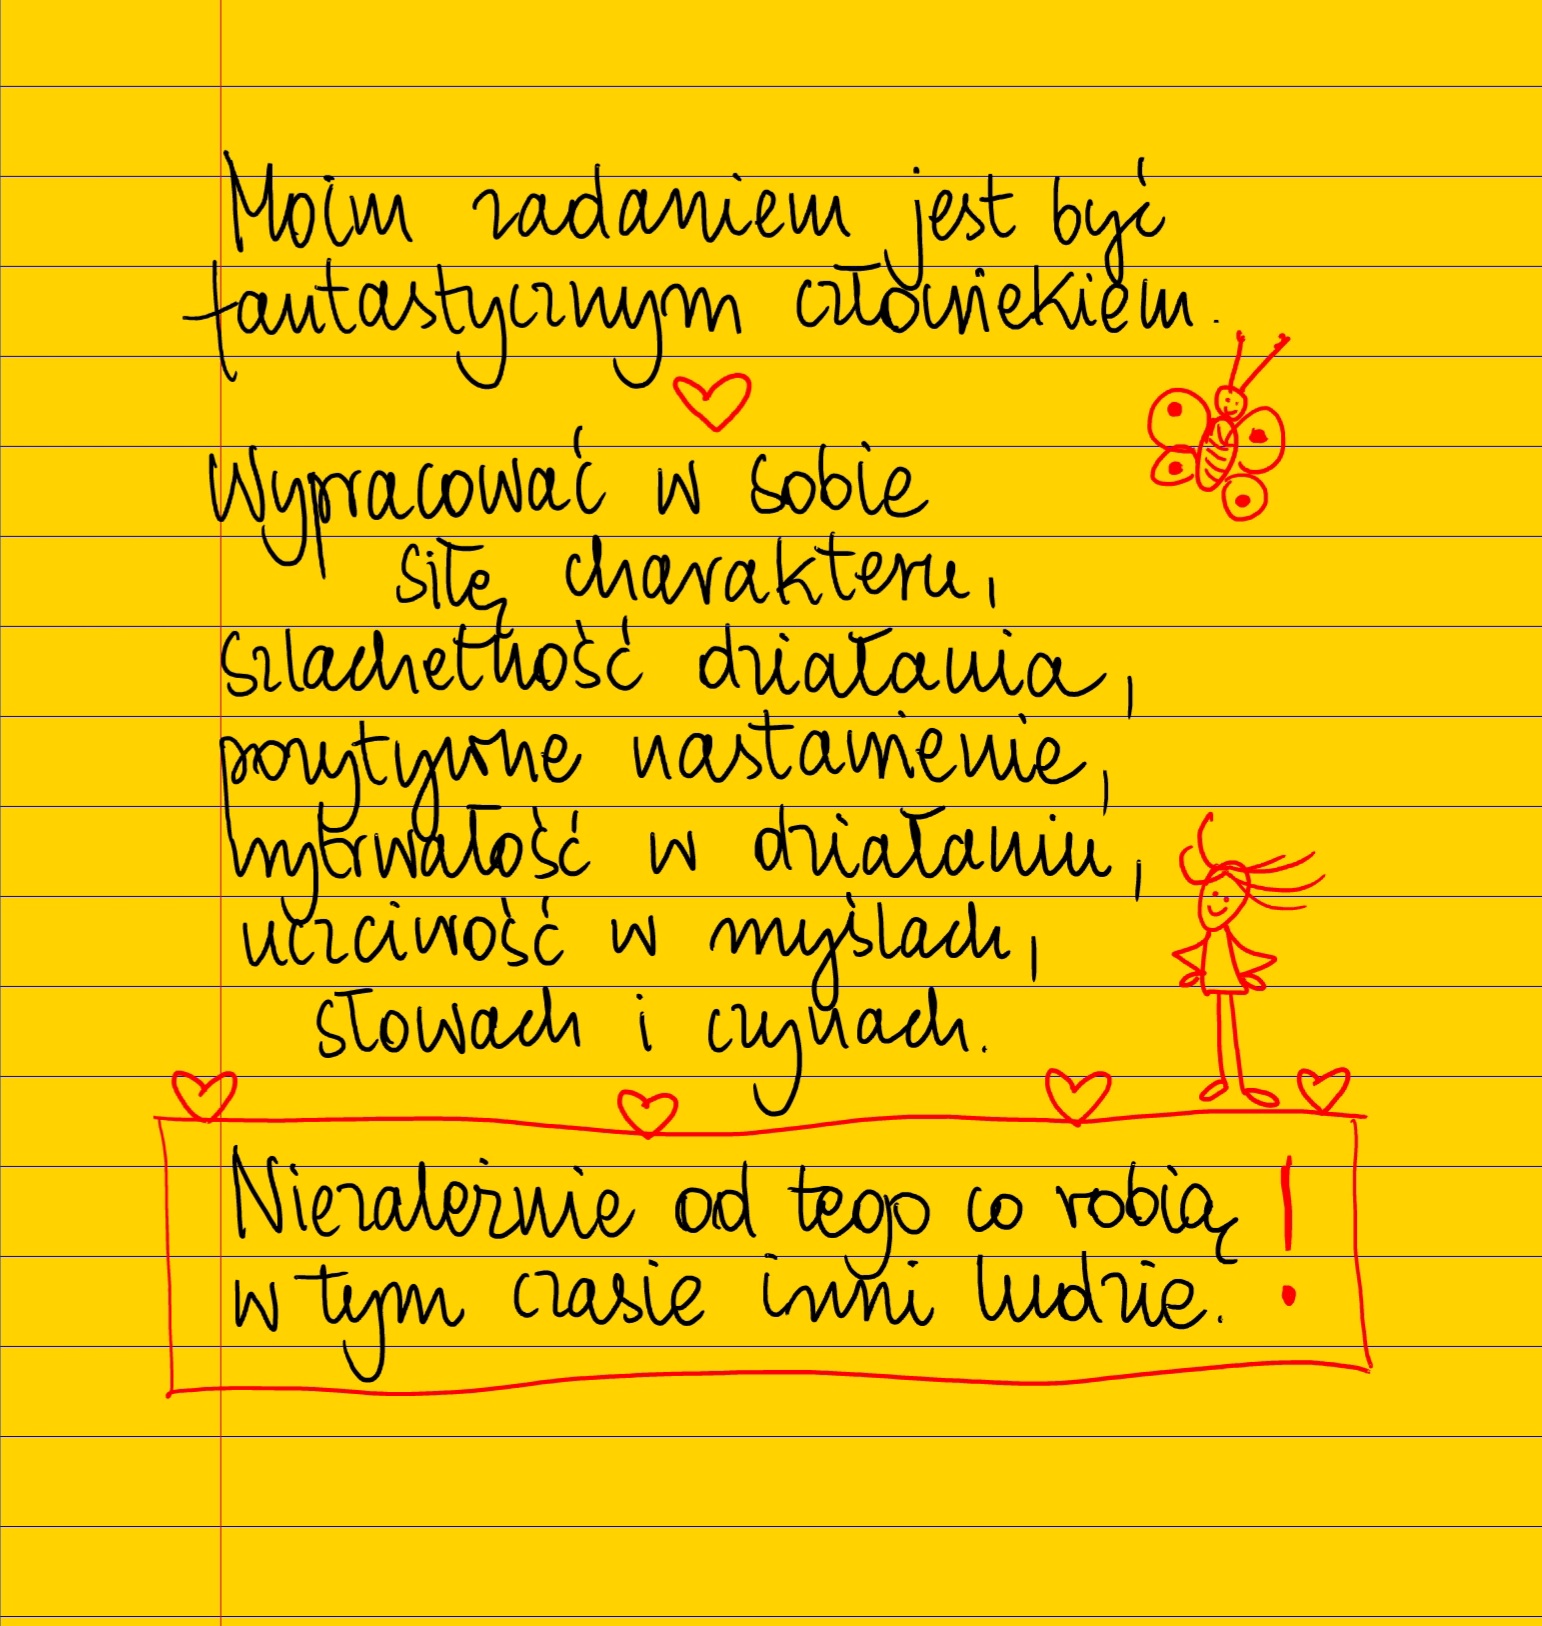 Moim zadaniem jest być
fantastycznym człowiekiem.
Wypracować w sobie
siłę charakteru,
szlachetność działania,
pozytywne nastawienie,
wytrwałość w działaniu,
uczciwość w myślach,
słowach i czynach.
Niezależnie od tego co robią
w tym czasie inni ludzie. !